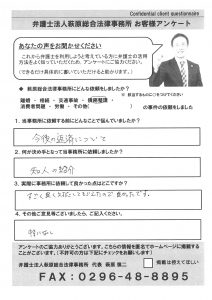 Confidential client questionnaire
弁護士法人萩原総合法律事務所 お客様アンケート
あなたの声をお聞かせください
これから弁護士を利用しようと考えている方に弁護士の活用
方法をよく知っていただくため、アンケートにご協力ください。
(できるだけ具体的に書いていただけると助かります。)
◆ 萩原総合法律事務所にどんな依頼をしましたか?
※ 該当するものに○をつけてください
離婚 ・ 相続 ・ 交通事故 ・ 債務整理 ・
消費者問題 ・ 労働 ・ その他( ) の事件を依頼しました
1. 当事務所に依頼する前にどんなことで悩んでいましたか?
今後の返済について
2. 何が決め手となって当事務所に依頼しましたか?
知人の紹介
3. 実際に事務所に依頼して良かった点はどこですか?
すごく良く対応してもらえたので良かったです。
4. その他ご意見等ございましたら、ご記入ください。
特になし
アンケートのご協力ありがとうございます。こちらの情報を匿名でホームページに掲載する
ことがございます。(不許可の方は下記にチェックをお願いします)
弁護士法人萩原総合法律事務所 代表 萩原 慎二
掲載は控えてほしい
FAX:0296-48-8895